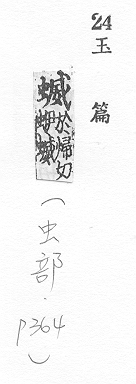 24
玉篇
蝛
於歸切
蛜蝛
（虫部．p364）